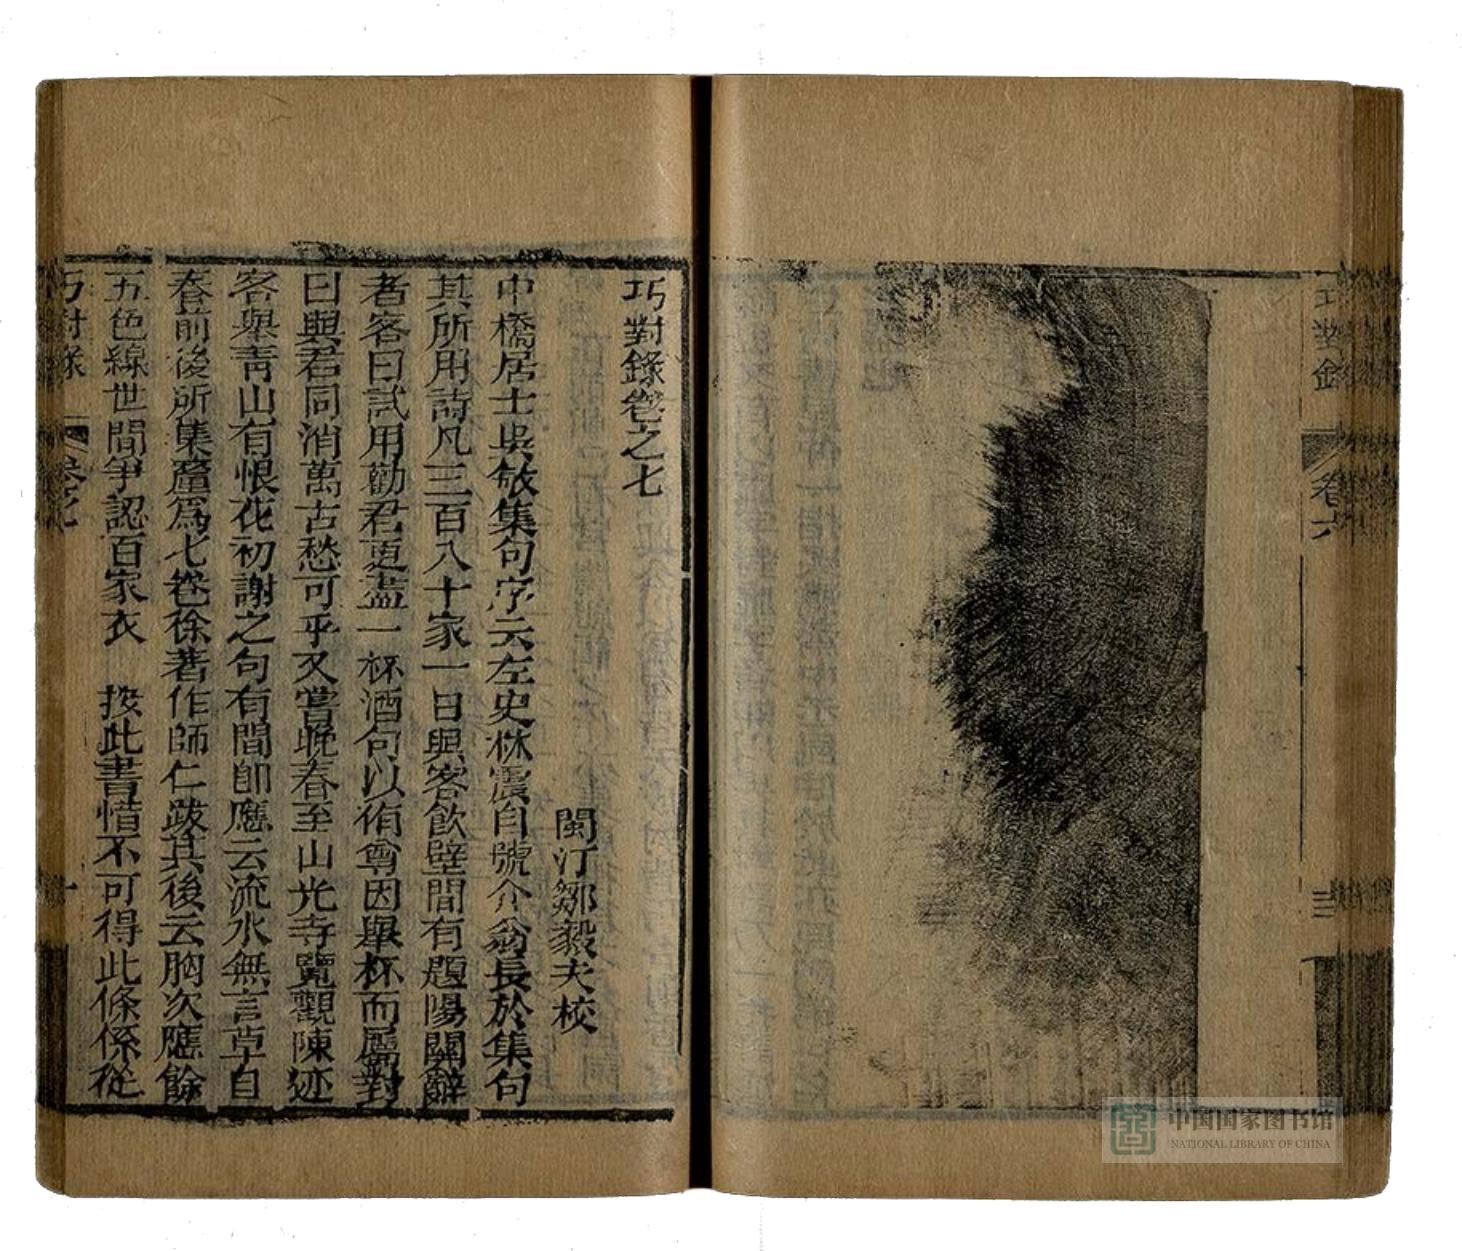 巧對錄
卷六
三
巧對錄卷之七
閩汀鄒毅夫校
中橋居士吳敏集句序云左史林震自號介翁長於集句
其所用詩凡三百八十家一日與客飲壁間有題陽關辭
者客曰試用勸君更盡一杯酒句以侑尊因舉杯而屬對
曰與君同消萬古愁可乎又嘗晚春至山光寺覽觀陳迹
客舉靑山有恨花初謝之句有間卽應云流水無言草自
春前後所集釐爲七卷徐著作師仁跋其後云胸次應餘
五色線世間爭認百家衣　按此書惜不可得此條係從
巧對錄
卷七
一
中国国家图书馆
NATIONAL LIBRARY OF CHINA